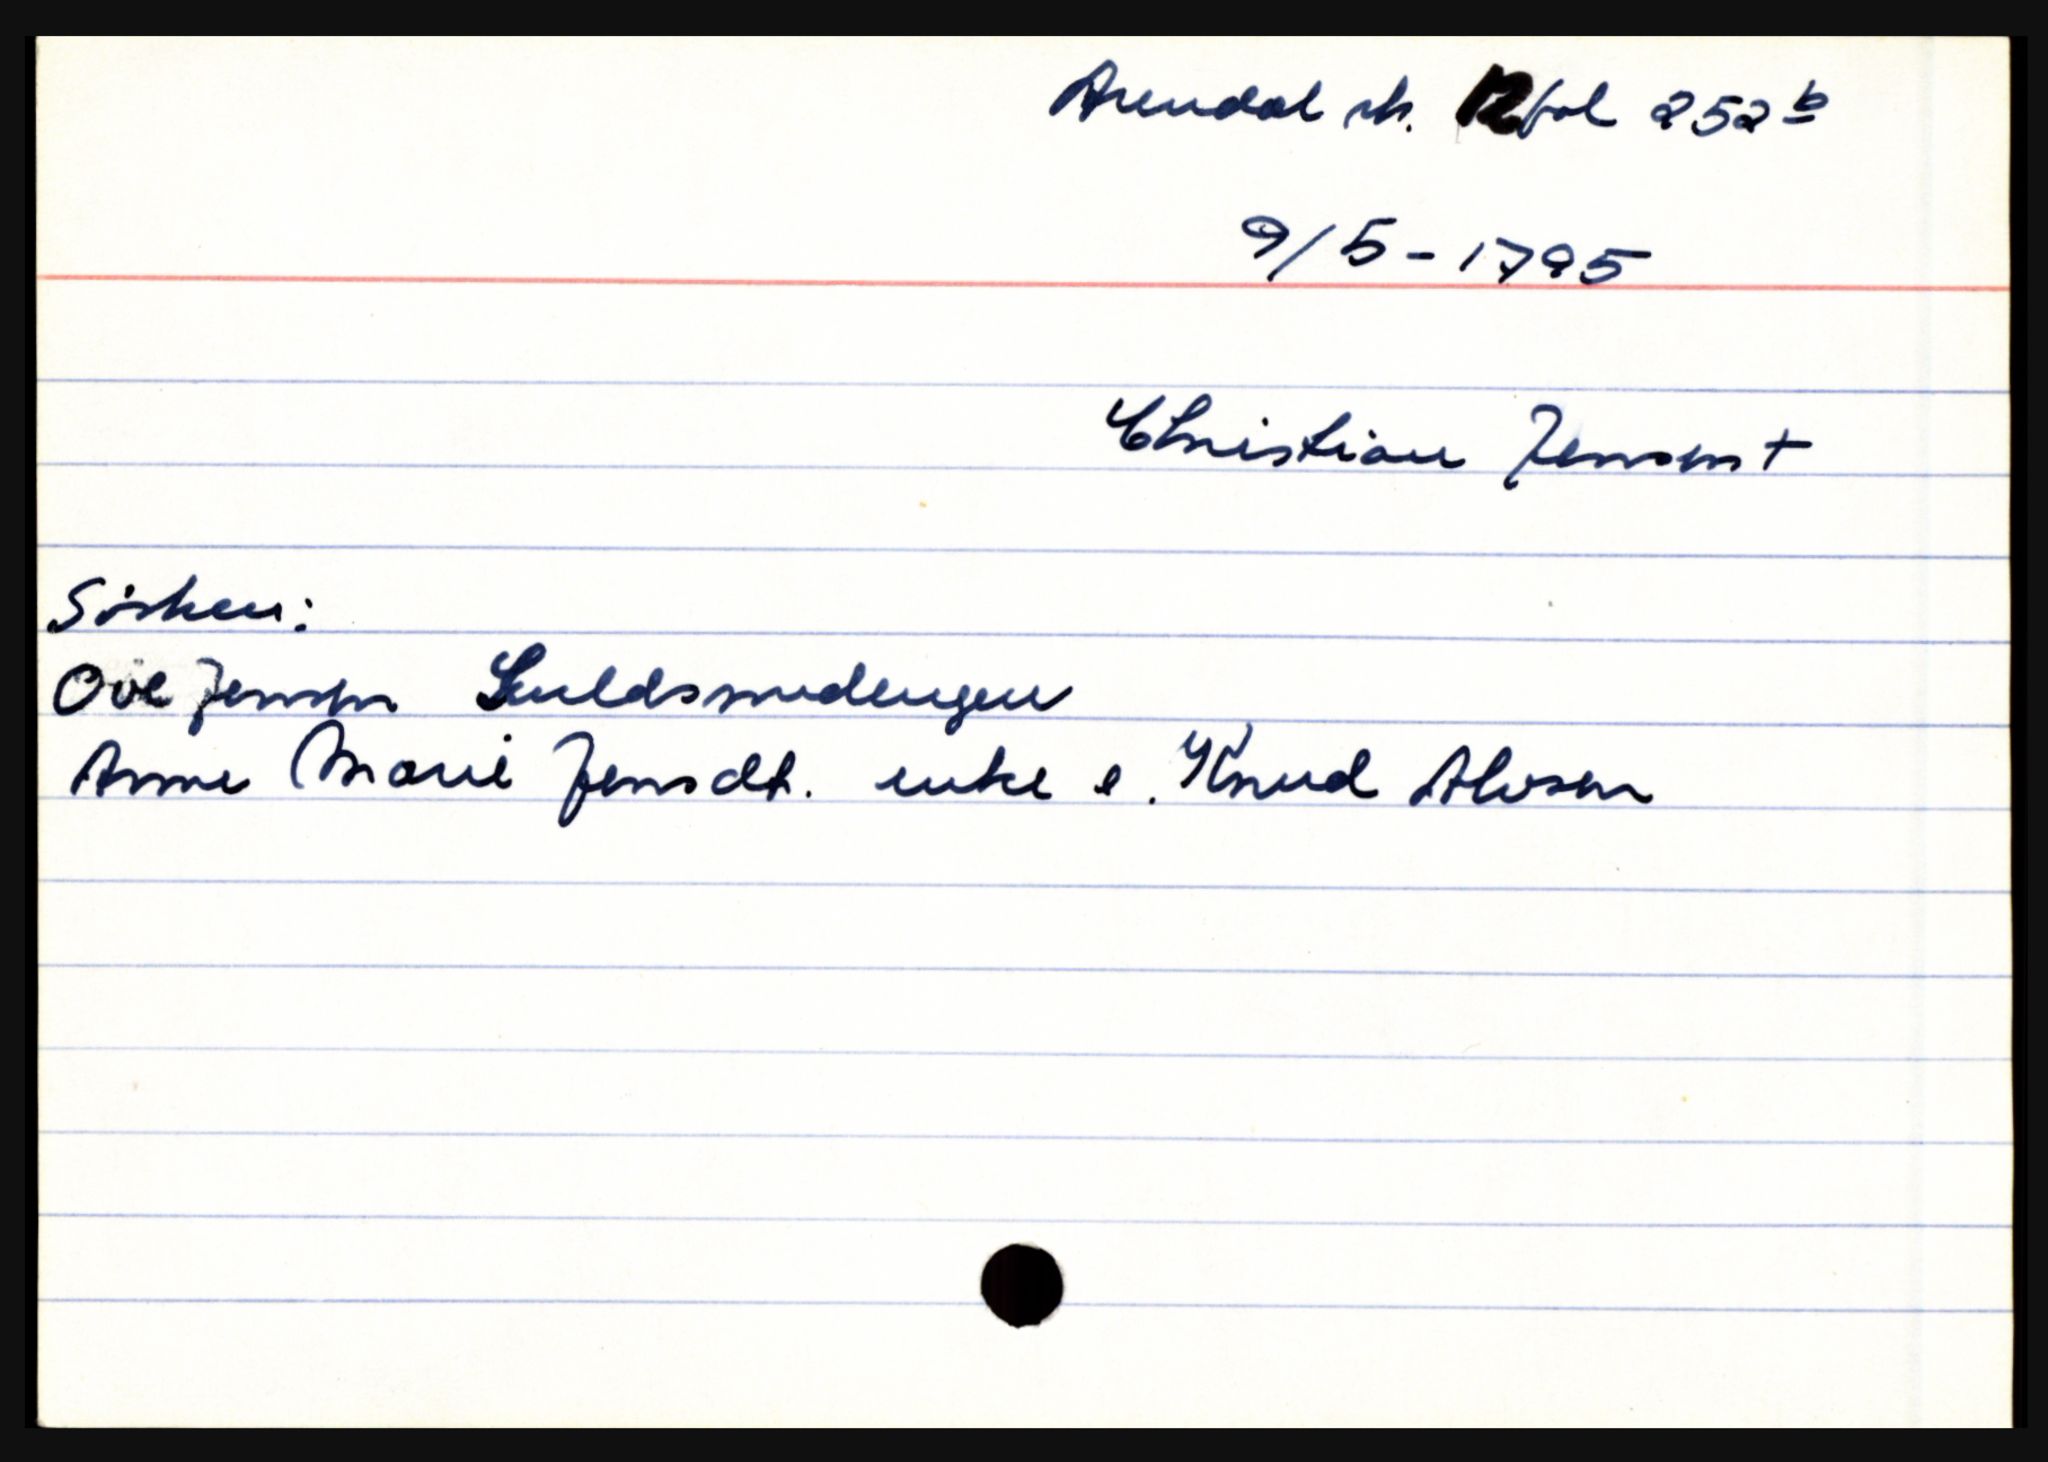 Arendal sk. 12 fol 252 b
9/5 - 1795
Christian Jensen +
Søsken:
Ove Jensen Suldsmudengen
Anne Marie Jensdt. enke e. Knud Alvsen